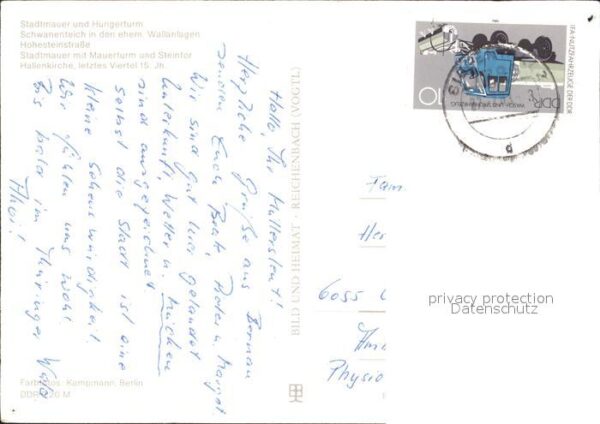 Stadtmauer und Hungerturm
Schwanenteich in den ehem. Wallanlagen
Hohesteinstraße
Stadtmauer mit Mauerturm und Steintor
Hallenkirche, letztes Viertel 15. Jh.
Hallo, Ihr
Herzliche Grüße aus Bernau
senden Euch Beate, Peter u. Margot.
Wir sind gut hier gelandet
Unterkunft, Wetter u. Mücken
sind ausgezeichnet
selbst die Stadt ist eine
kleine Sehenswürdigkeit
Wir fühlen uns wohl
Bis bald im Thüringer Wald
Ahoi!
Farbfotos: Kampmann, Berlin
DDR 0,20 M
BILD UND HEIMAT · REICHENBACH (VOGTL)
IFA-NUTZFAHRZEUGE DER DDR
DDR 10
Fam
Her
6055
Physio
privacy protection
Datenschutz